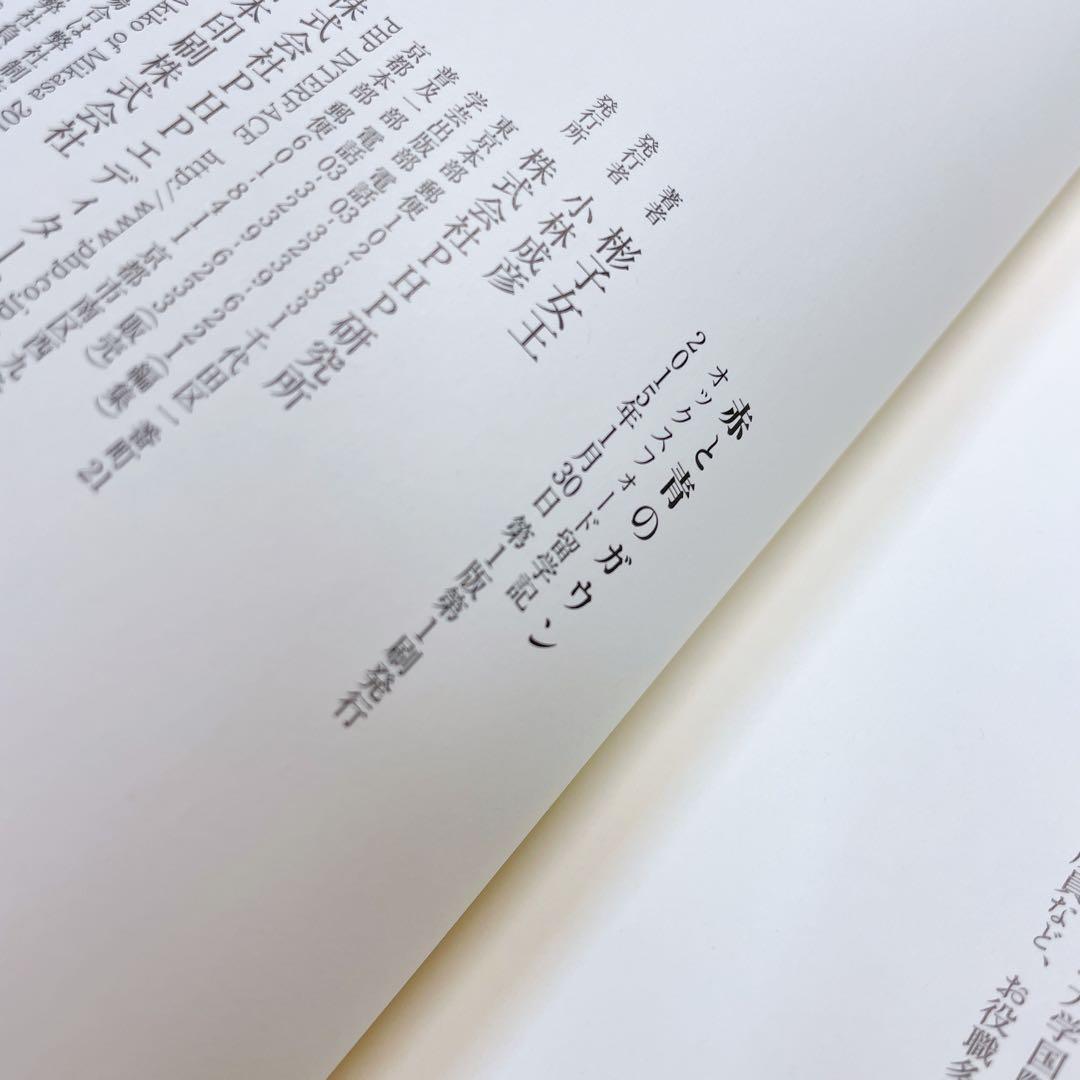 赤と青のガウン
オックスフォード留学記
2015年1月30日 第1版第1刷発行
著者 彬子女王
発行者 小林成彦
発行所 株式会社PHP研究所
東京本部 郵便102-8331 千代田区一番町21
学芸出版部 電話03-3239-6221(編集)
普及一部 電話03-3239-6233(販売)
京都本部 郵便601-8411 京都市南区西九
PHP INTERFACE http://www.php.co.jp
株式会社PHPエディター
本印刷株式会社
of Mikasa 201
場合は弊社制
学国際
員など、お役職多